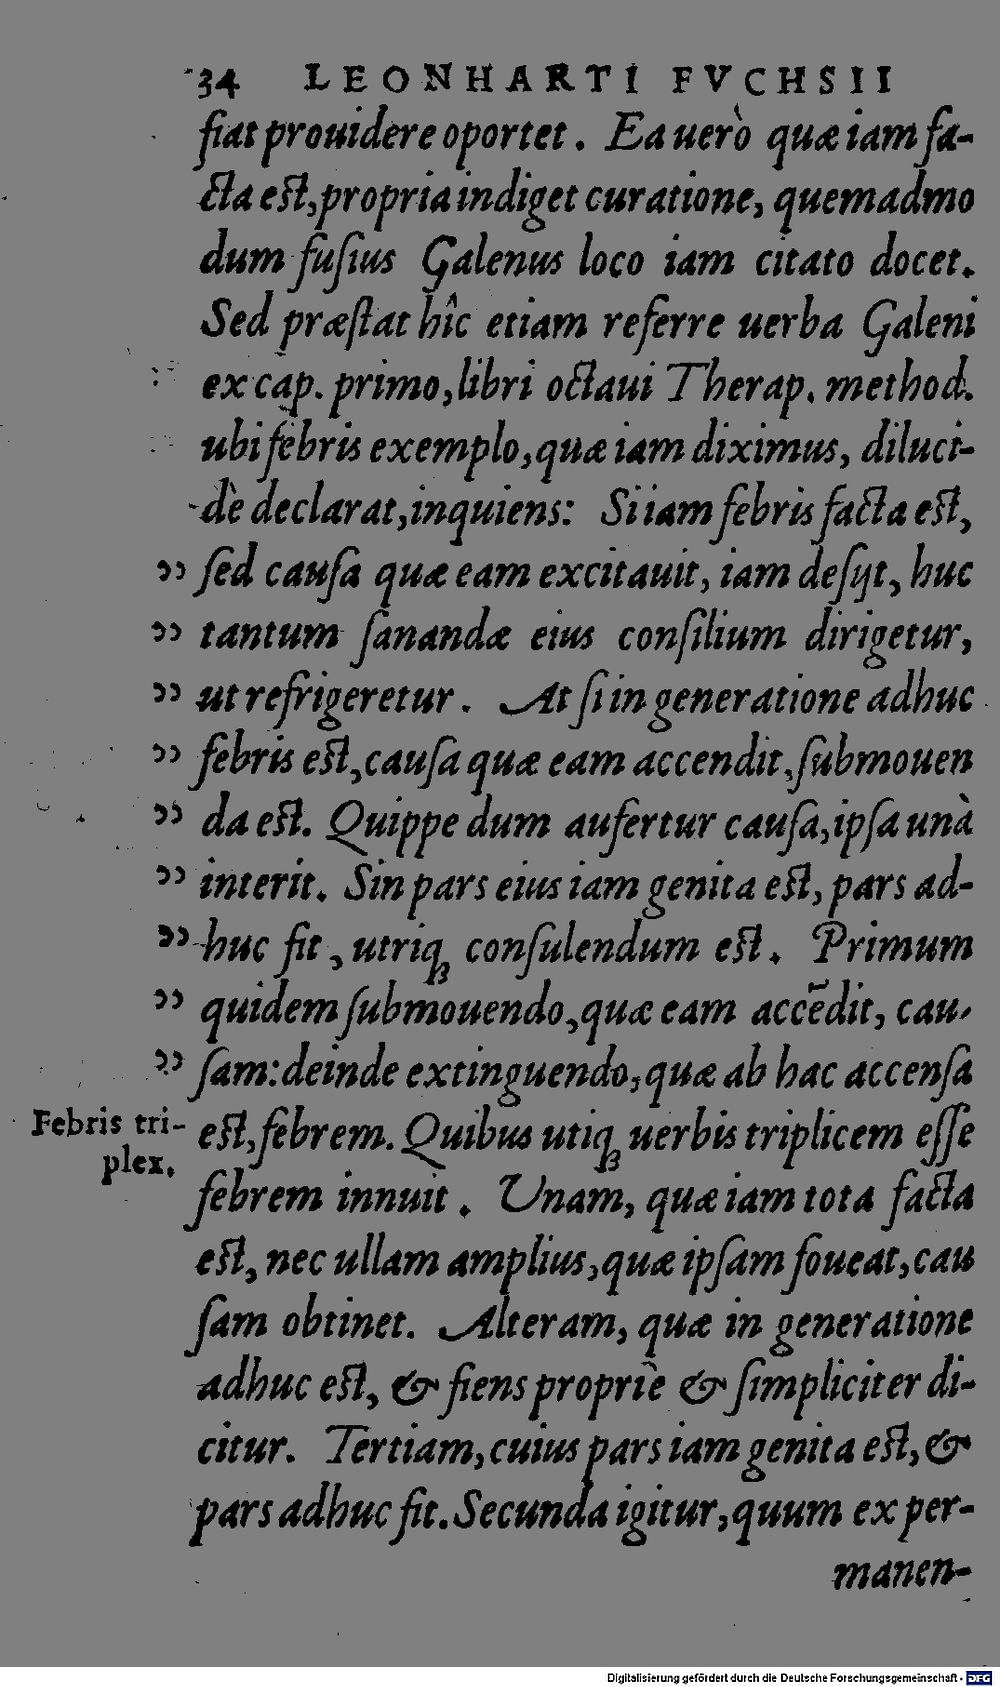 34 LEONHARTI FVCHSII
fiat prouidere oportet. Ea uerò quæ iam fa-
cta est, propria indiget curatione, quemadmo
dum fuſius Galenus loco iam citato docet.
Sed præſtat hîc etiam referre uerba Galeni
ex cap. primo, libri octaui Therap. method.
ubi febris exemplo, quæ iam diximus, diluci-
dè declarat, inquiens: Si iam febris facta est,
ſed cauſa quæ eam excitauit, iam deſijt, huc
tantum ſanandæ eius conſilium dirigetur,
ut refrigeretur. At ſi in generatione adhuc
febris est, cauſa quæ eam accendit, ſubmouen
da est. Quippe dum aufertur cauſa, ipſa unà
interit. Sin pars eius iam genita est, pars ad-
huc fit, utriqꝫ conſulendum est. Primum
quidem ſubmouendo, quæ eam accẽdit, cau-
ſam: deinde extinguendo, quæ ab hac accenſa
Febris tri-
plex.
est, febrem. Quibus utiqꝫ uerbis triplicem eſſe
febrem innuit. Unam, quæ iam tota facta
est, nec ullam amplius, quæ ipſam foueat, cau
ſam obtinet. Alteram, quæ in generatione
adhuc est, & fiens propriè & ſimpliciter di-
citur. Tertiam, cuius pars iam genita est, &
pars adhuc fit. Secunda igitur, quum ex per-
manen-
Digitalisierung gefördert durch die Deutsche Forschungsgemeinschaft - DFG